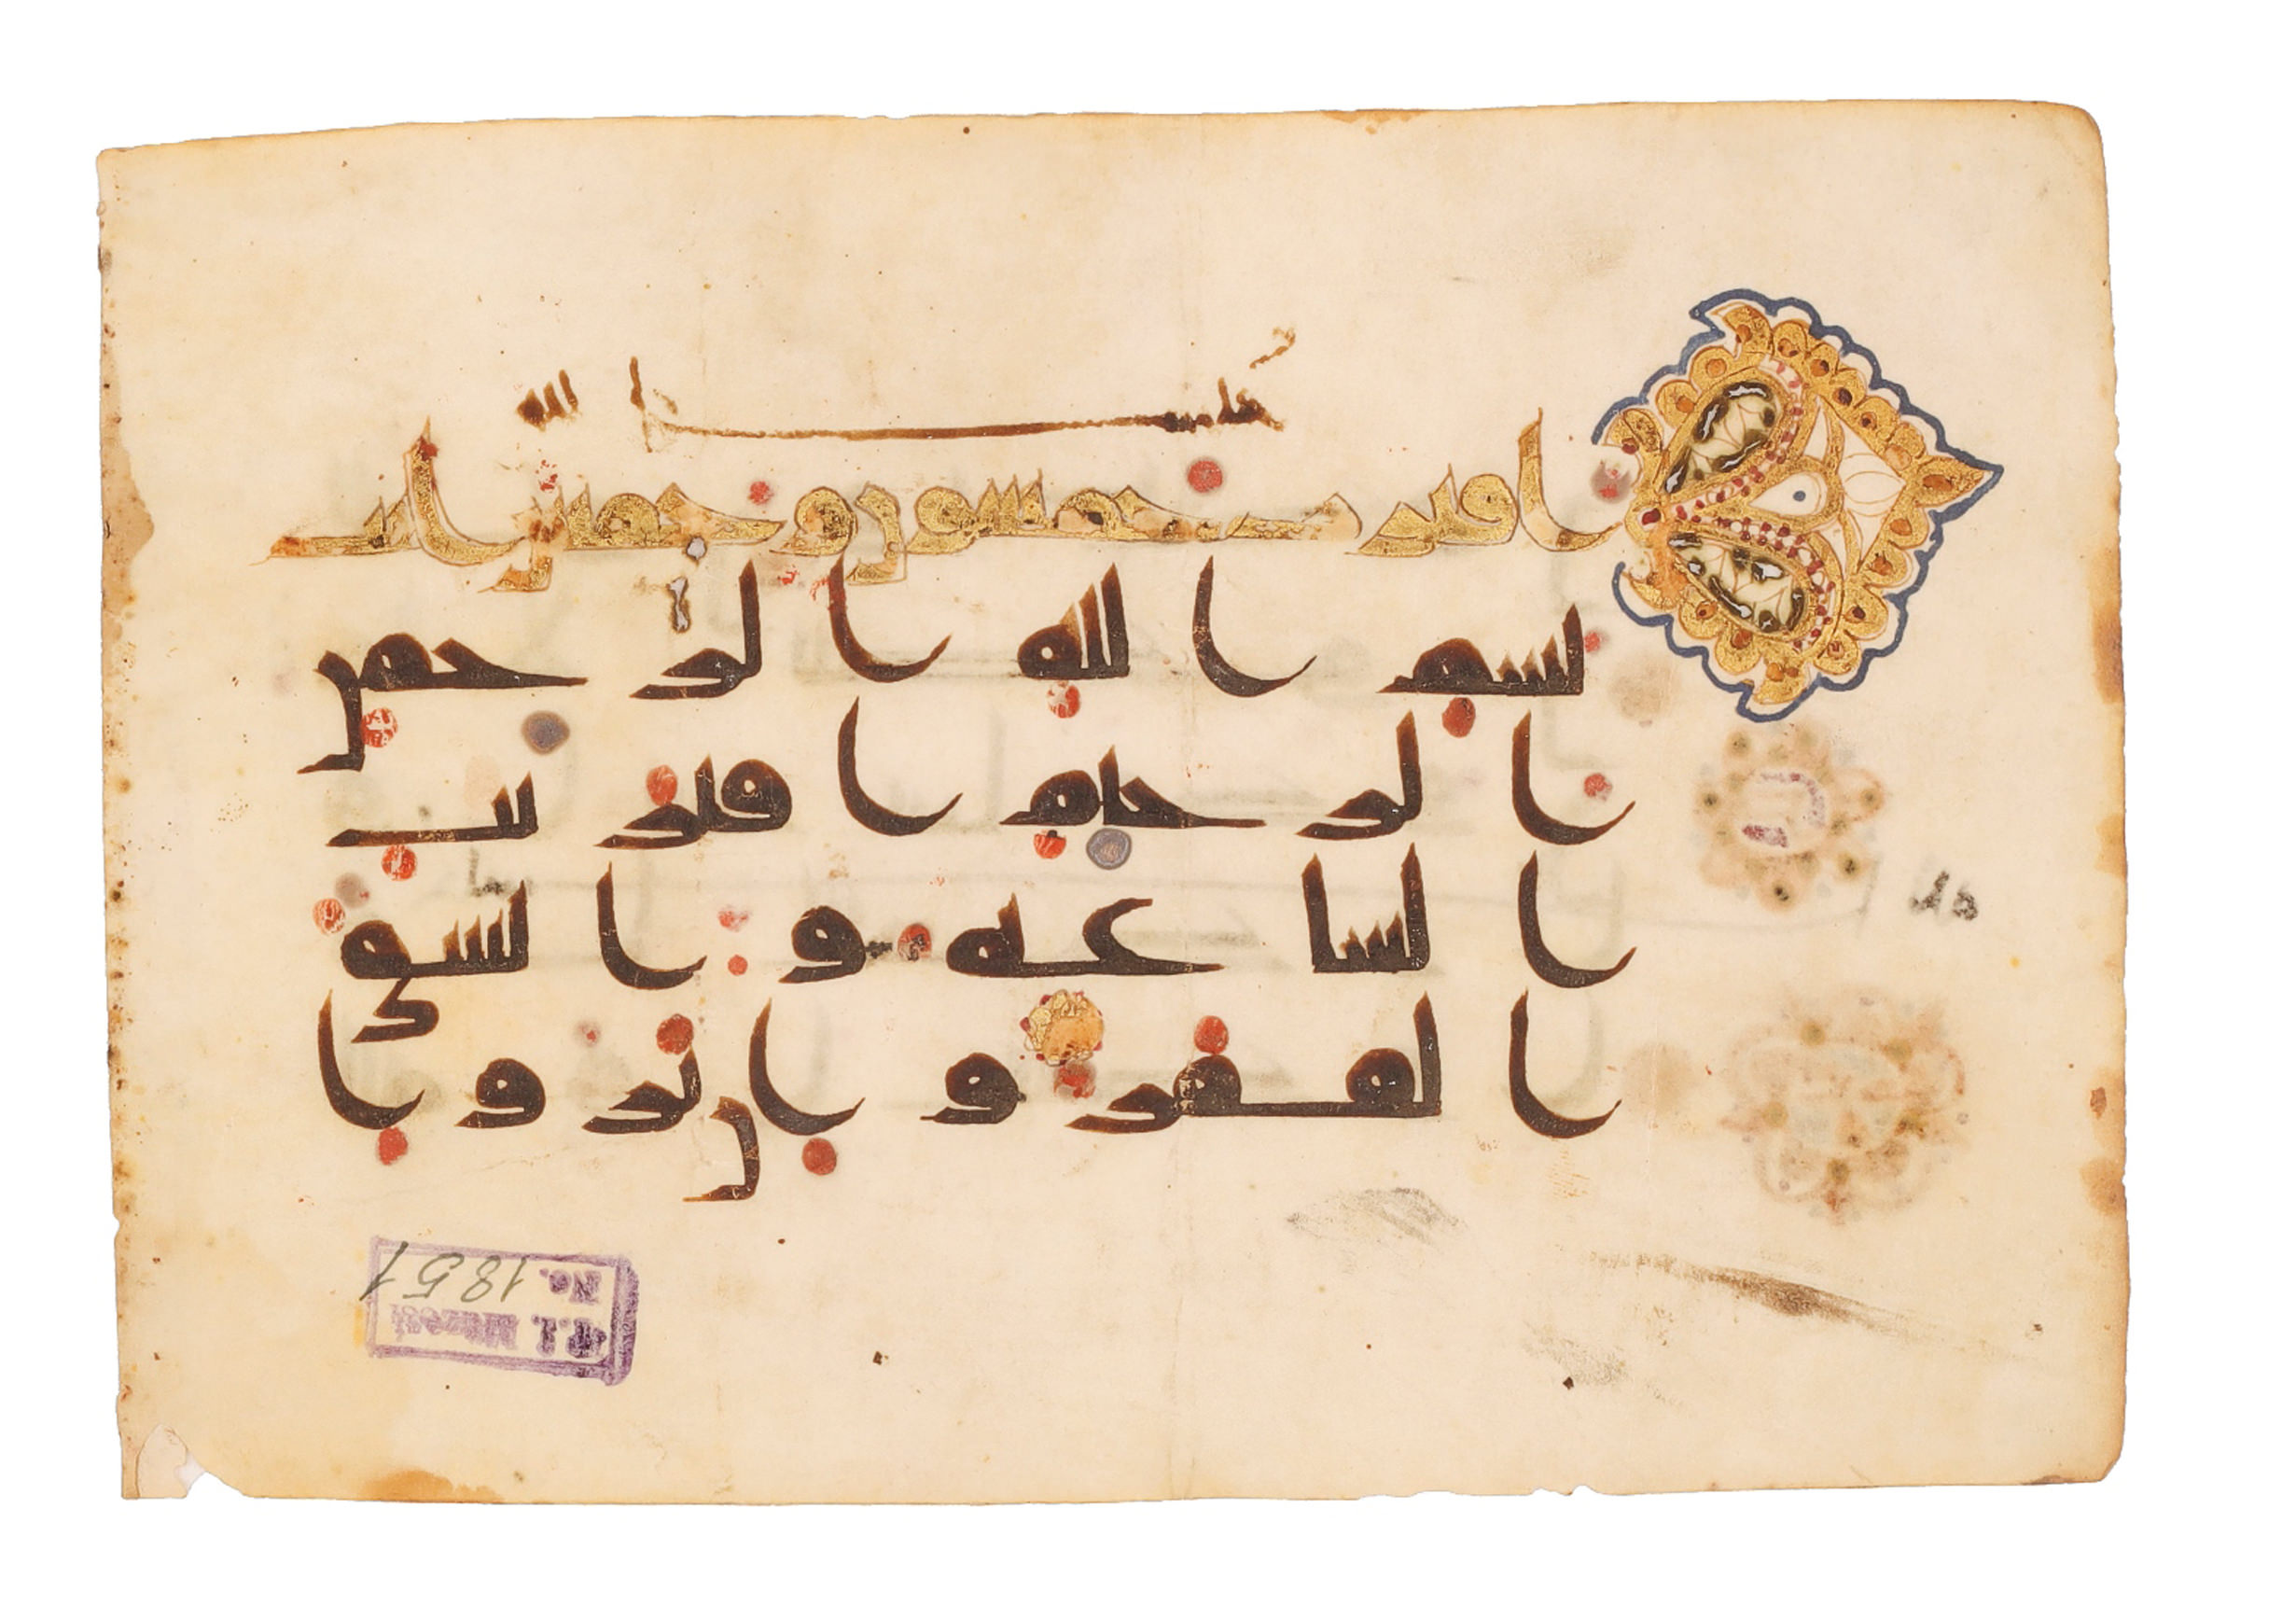 اقتربت خمسون وخمس ايت
بسم الله الرحمن
الرحيم اقتربت
الساعة وانشق
القمر وان يروا
T.I. Müzesi
No. 1851